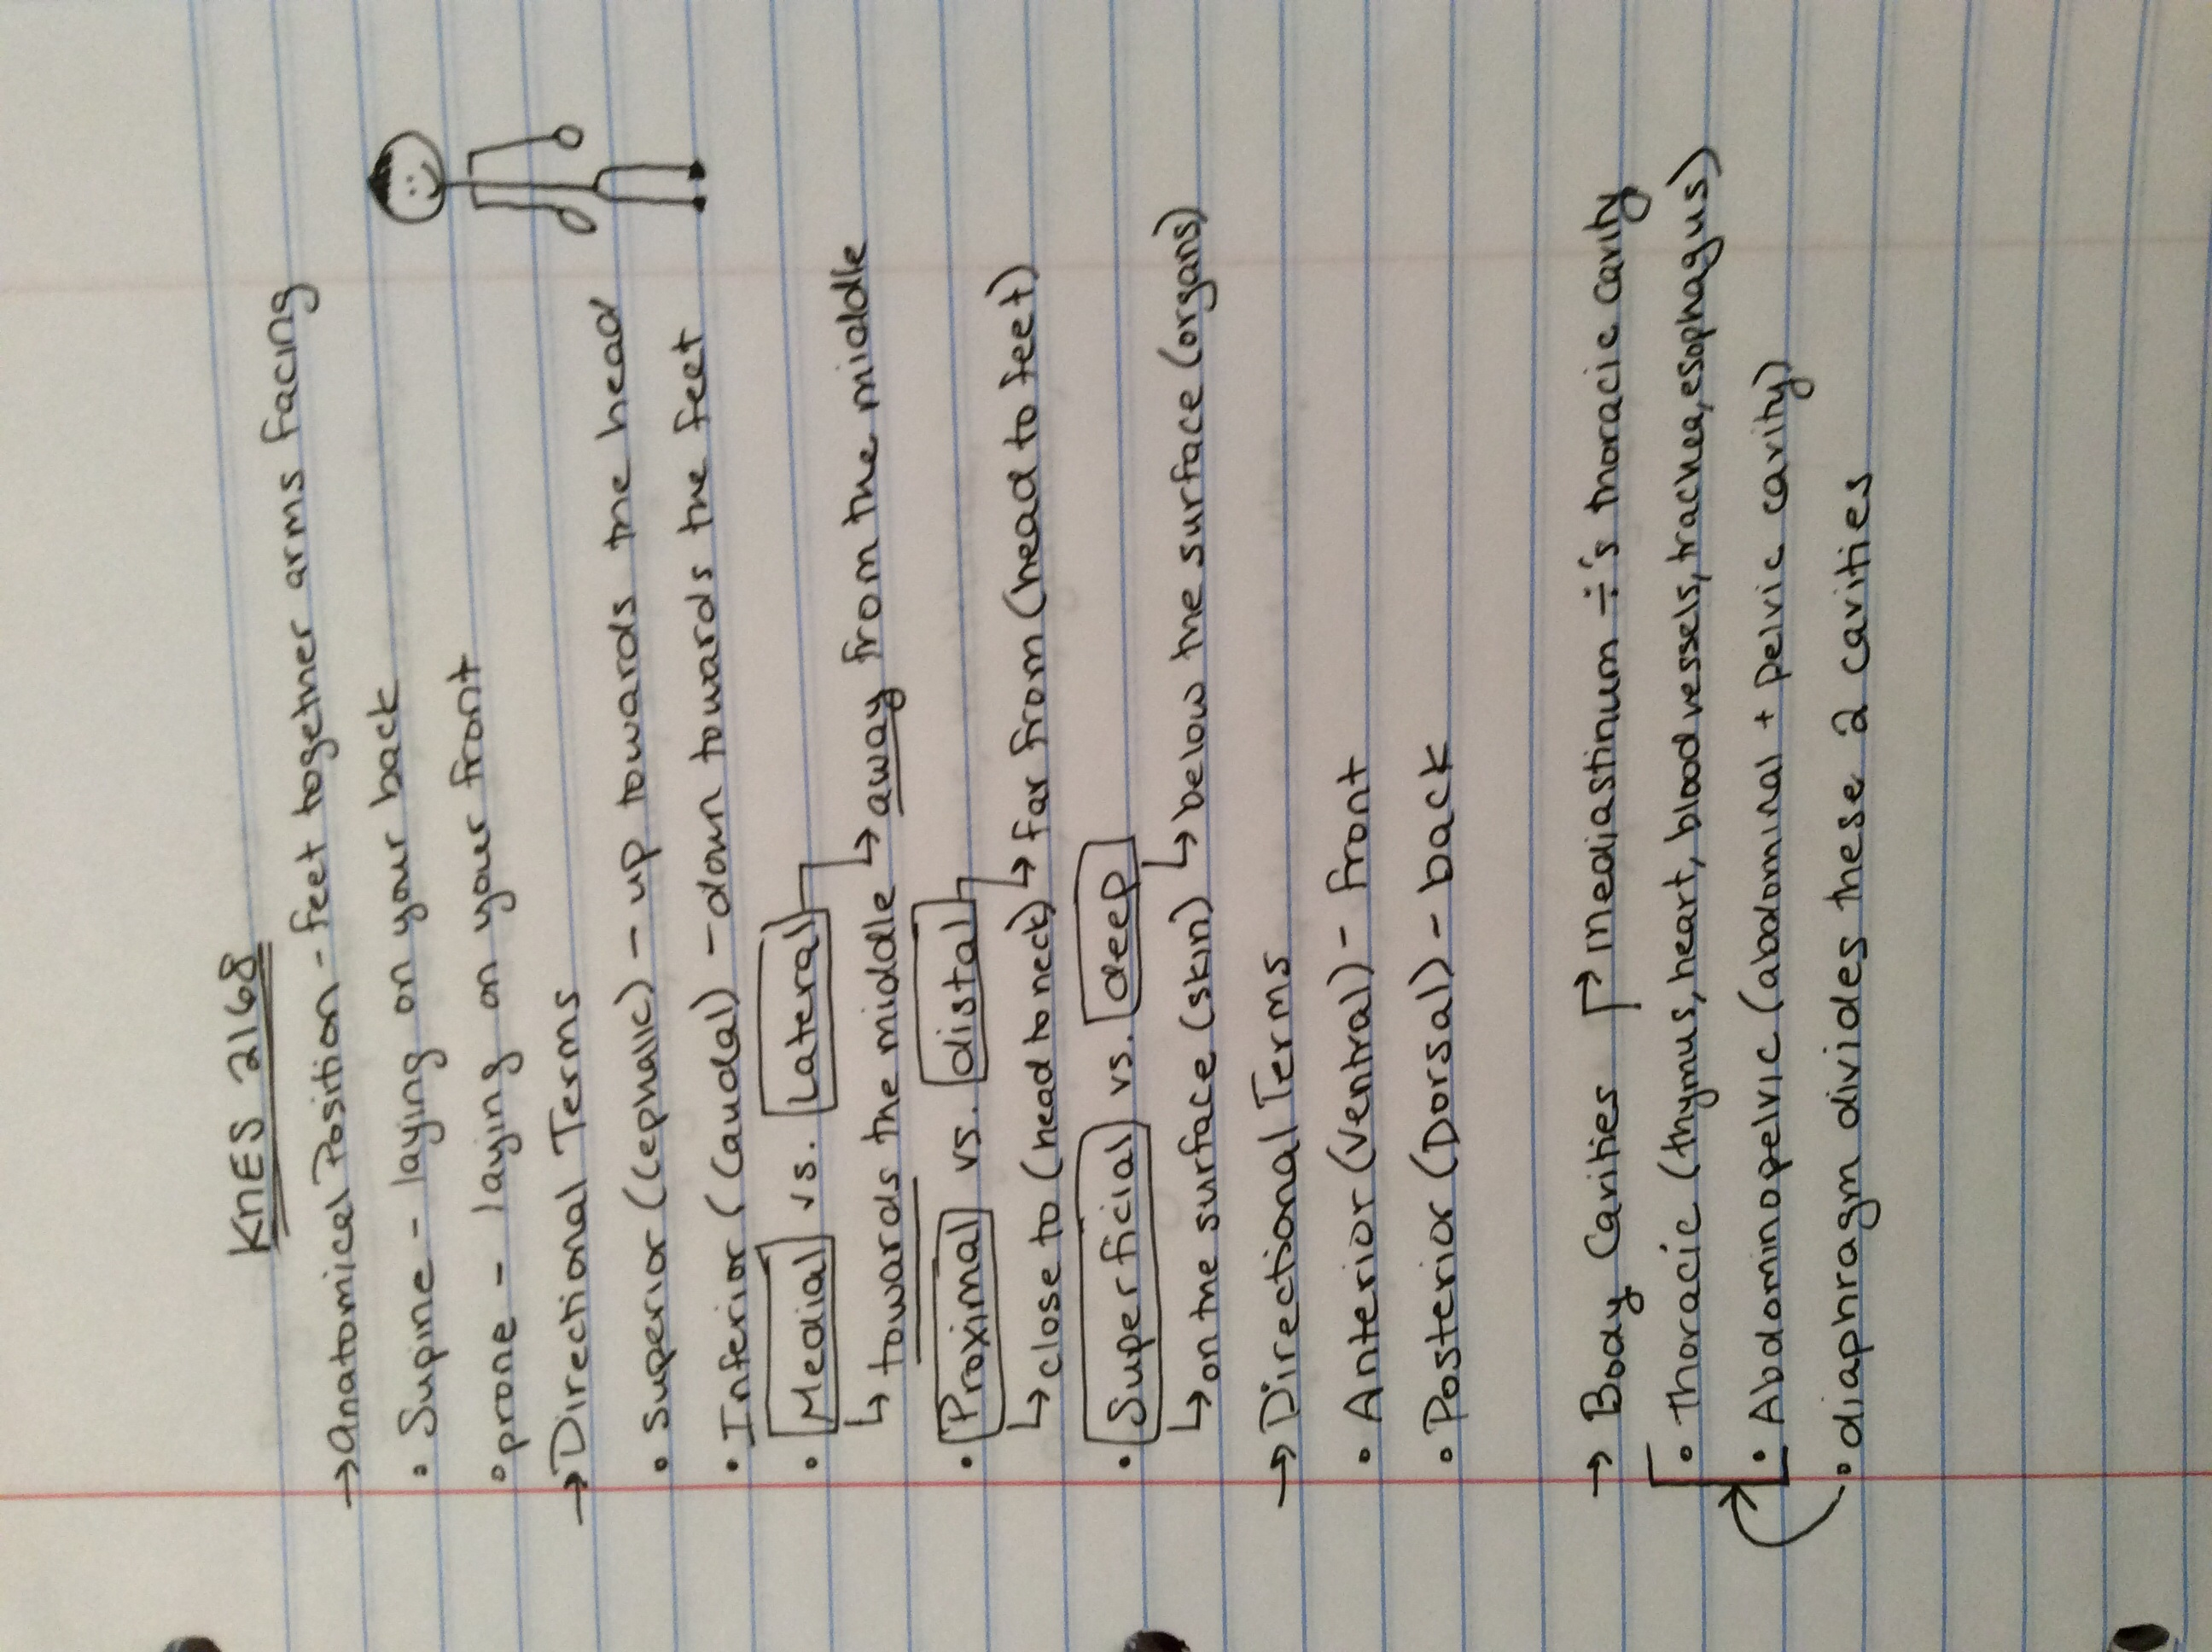 KNES 2168
→ Anatomical Position - feet together arms facing
• Supine - laying on your back
• prone - laying on your front
→ Directional Terms
• Superior (cephalic) - up towards the head
• Inferior (Caudal) - down towards the feet
• Medial vs. Lateral
↳ towards the middle ↳ away from the middle
• Proximal vs. distal
↳ close to (head to neck) ↳ far from (head to feet)
• Superficial vs. deep
↳ on the surface (skin) ↳ below the surface (organs)
→ Directional Terms
• Anterior (Ventral) - front
• Posterior (Dorsal) - back
→ Body Cavities ↱ mediastinum ÷'s thoracic cavity
• Thoracic (thymus, heart, blood vessels, trachea, esophagus)
• Abdominopelvic (abdominal + pelvic cavity)
• diaphragm divides these 2 cavities